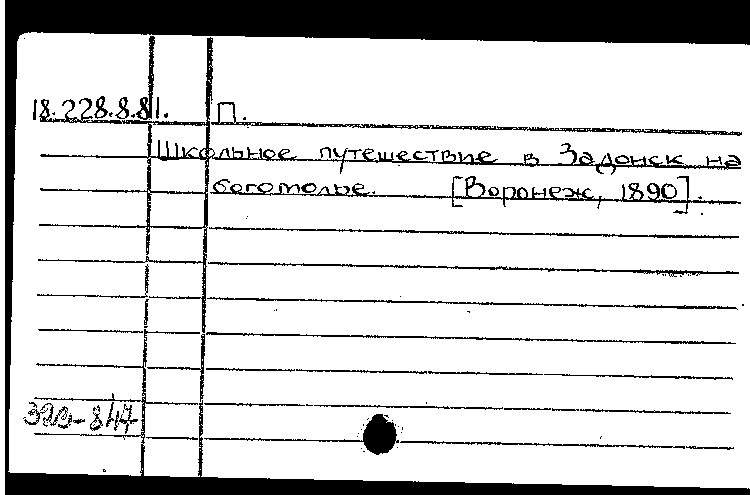 18.228.8.81. П.
Школьное путешествие в Задонск на
богомолье. [Воронеж, 1890].